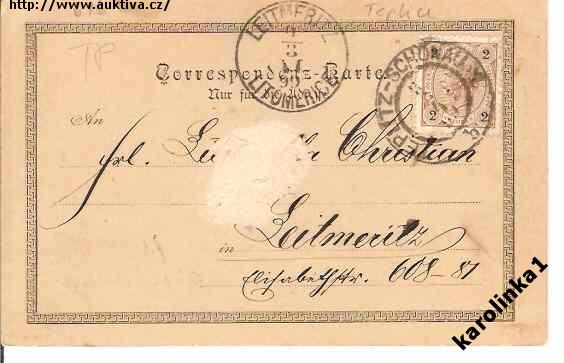 http://www.auktiva.cz/
Teplic
TP
LEITMERITZ
LITOMĚŘICE
TEPLITZ-SCHÖNAU
2 2
2 2
Correspondenz-Karte.
Nur für die Adresse.
An
Frl. Christian
in Leitmeritz
Elisabethstr. 608-81
karolinka1